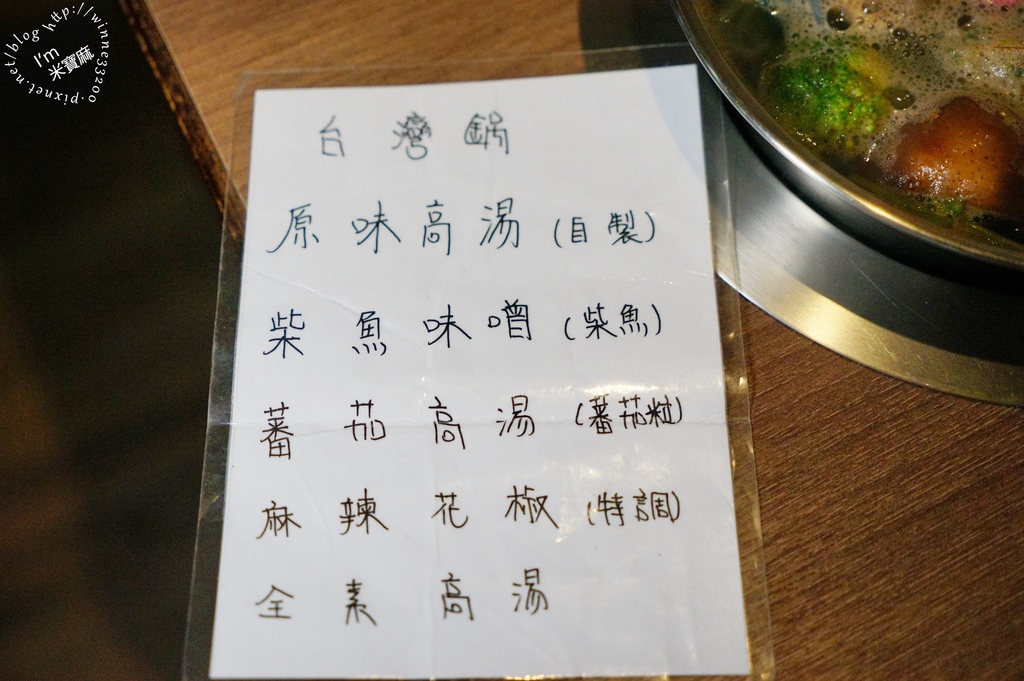 http://winnie33200.pixnet.net/blog
I'm
米寶麻
台灣鍋
原味高湯(自製)
柴魚味噌(柴魚)
蕃茄高湯(蕃茄粒)
麻辣花椒(特調)
全素高湯